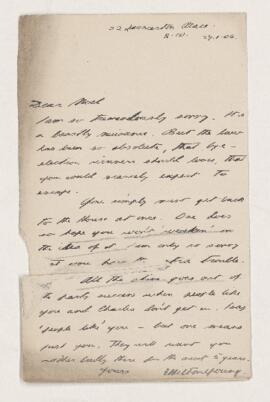 22 Lancaster Place
Dear Noel
I am so tremendously sorry. It is
a beastly nuisance. But the law
has been so absolute, that bye-
election winners should lose, that
you could scarcely expect to
escape.
You simply must get back
to the House at once. One does
so hope you won't in
the I am only so sorry
trouble.
All the shine goes out of
the party success when people like
you and Charles don't get in. I say
'people like you' – but one means
just you. They will want you
badly there for the next 5 years.
Yours
E Hilton Young